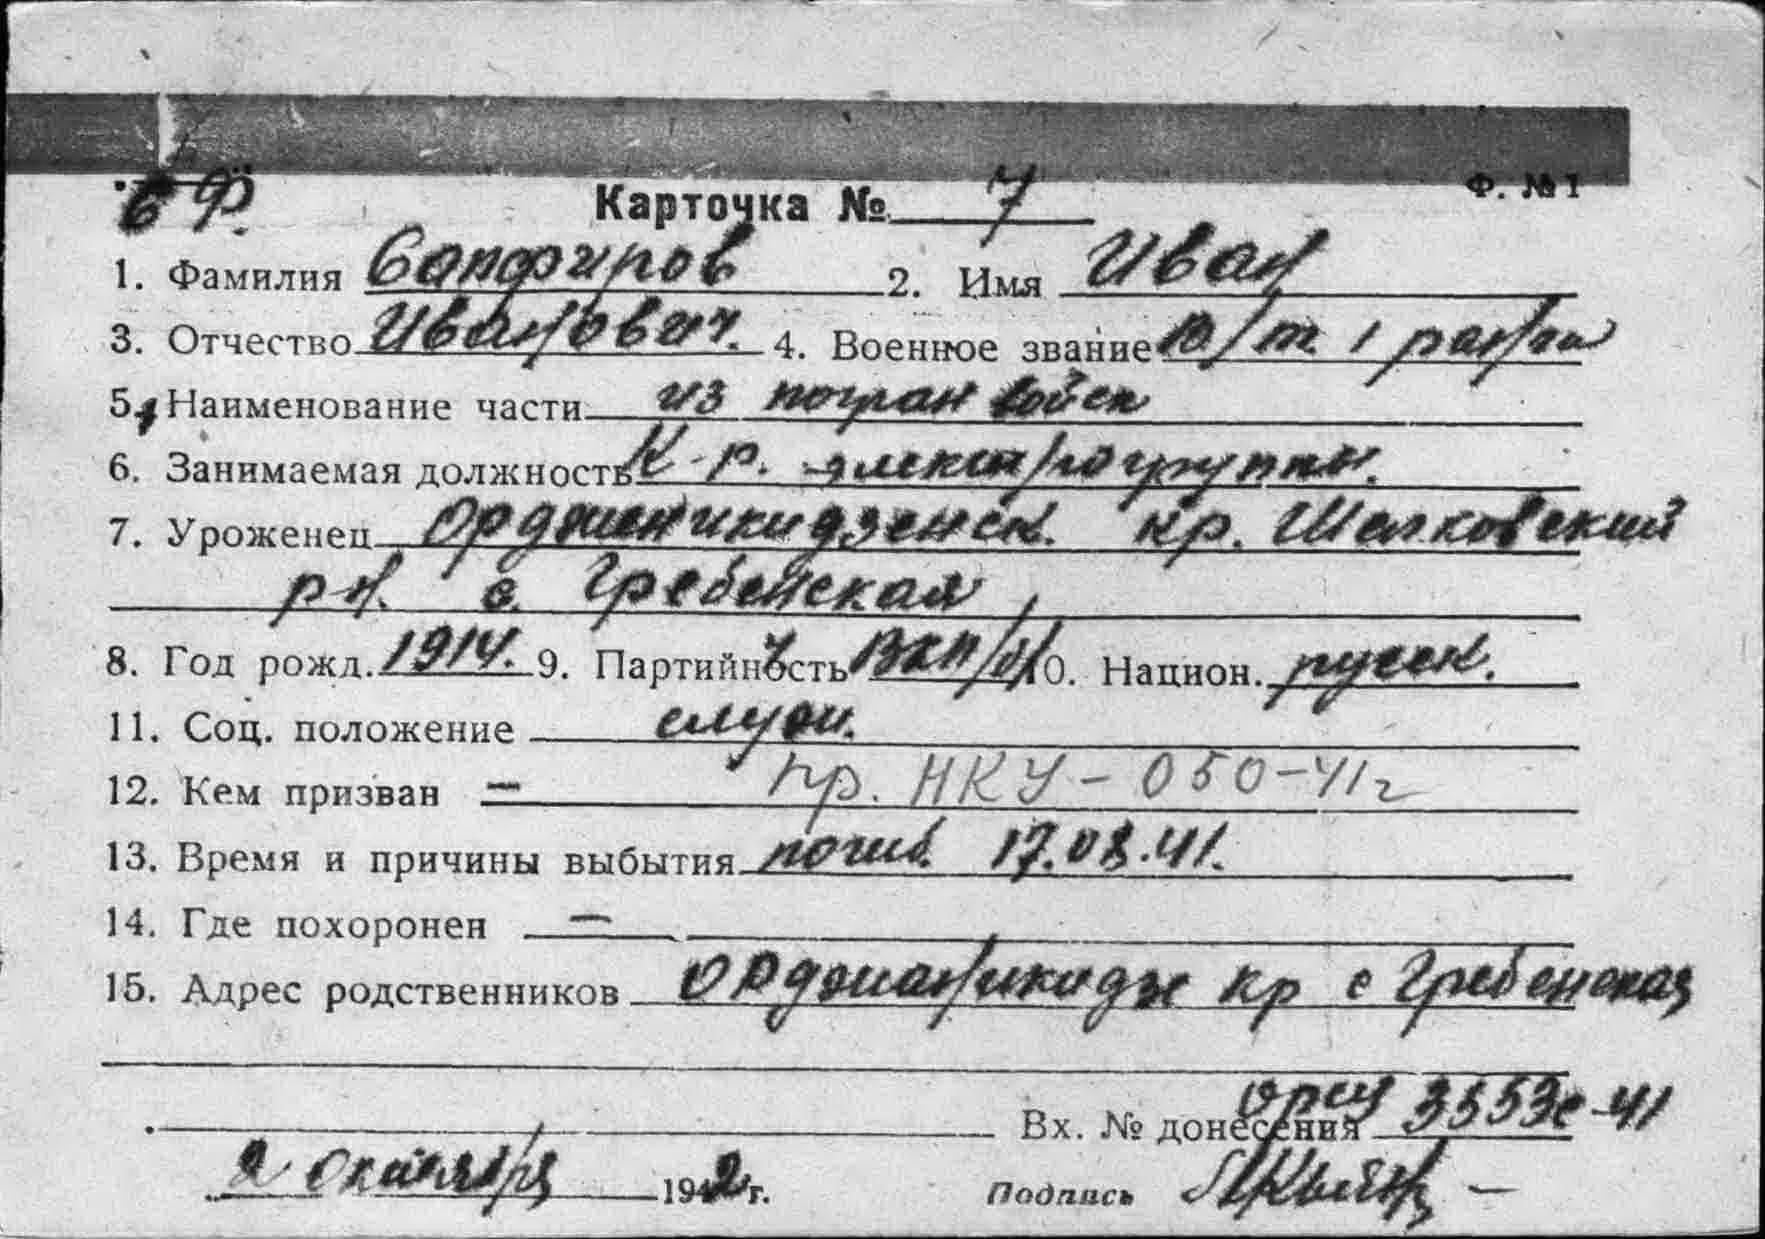 БФ.
Ф. №1
Карточка № 7
1. Фамилия Сапфиров 2. Имя Иван
3. Отчество Иванович. 4. Военное звание в/т. 1 ранга
5. Наименование части из погран войск
6. Занимаемая должность К-р. электрогруппы.
7. Уроженец Орджоникидзенск. кр. Шелковский
р-н. с. Гребенская
8. Год рожд. 1914. 9. Партийность ВКП/б/ 10. Национ. русск.
11. Соц. положение служ.
12. Кем призван — пр. НКУ-050-41г
13. Время и причины выбытия погиб. 17.08.41.
14. Где похоронен —
15. Адрес родственников Орджоникидзе кр с Гребенская
Вх. № донесения 3553с-41
2 октября 1942 г. Подпись